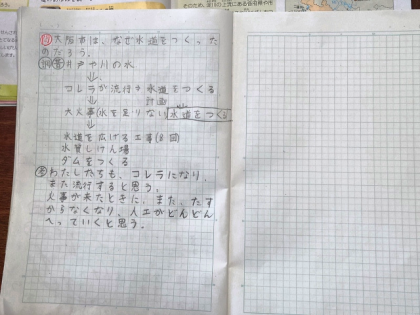 大阪市は、なぜ水道をつくった
のだろう。
昔 井戸や川の水
↓
コレラが流行 水道をつくる
計画
↓
大火事(水を足りない 水道をつくる
↓
水道を広げる工事(8回)
水質しけん場
ダムをつくる
わたしたちも、コレラになり、
また流行すると思う。
火事が来たときに、また、たす
からなくなり、人工がどんどん
へっていくと思う。